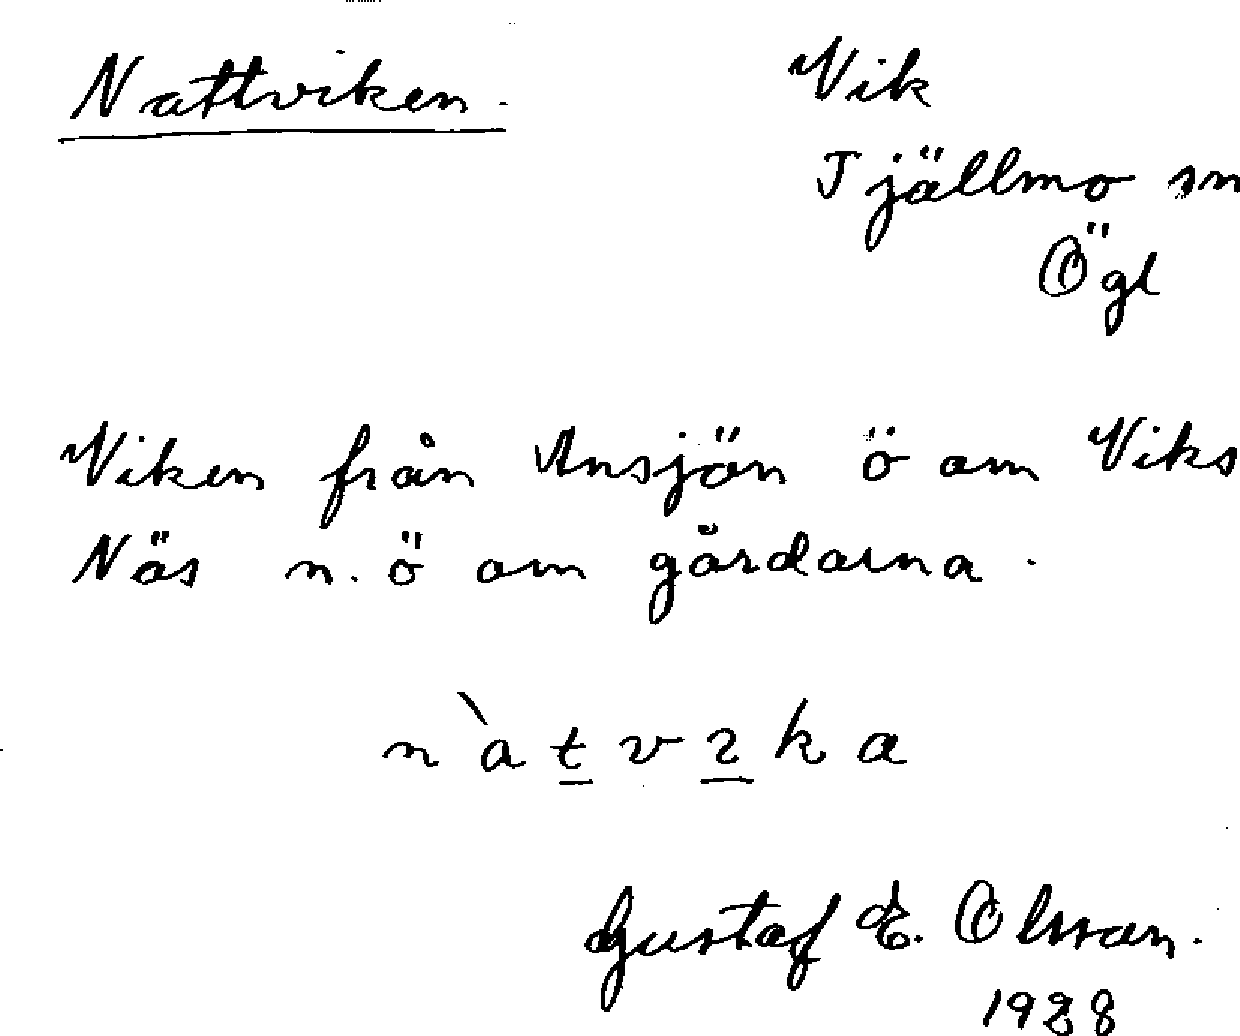 Nattviken.
Vik
Tjällmo sn
Ögl
Viken från Ansjön ö om Viks
Näs n. ö om gårdarna.
nàtvɩka
Gustaf E. Olsson.
1928